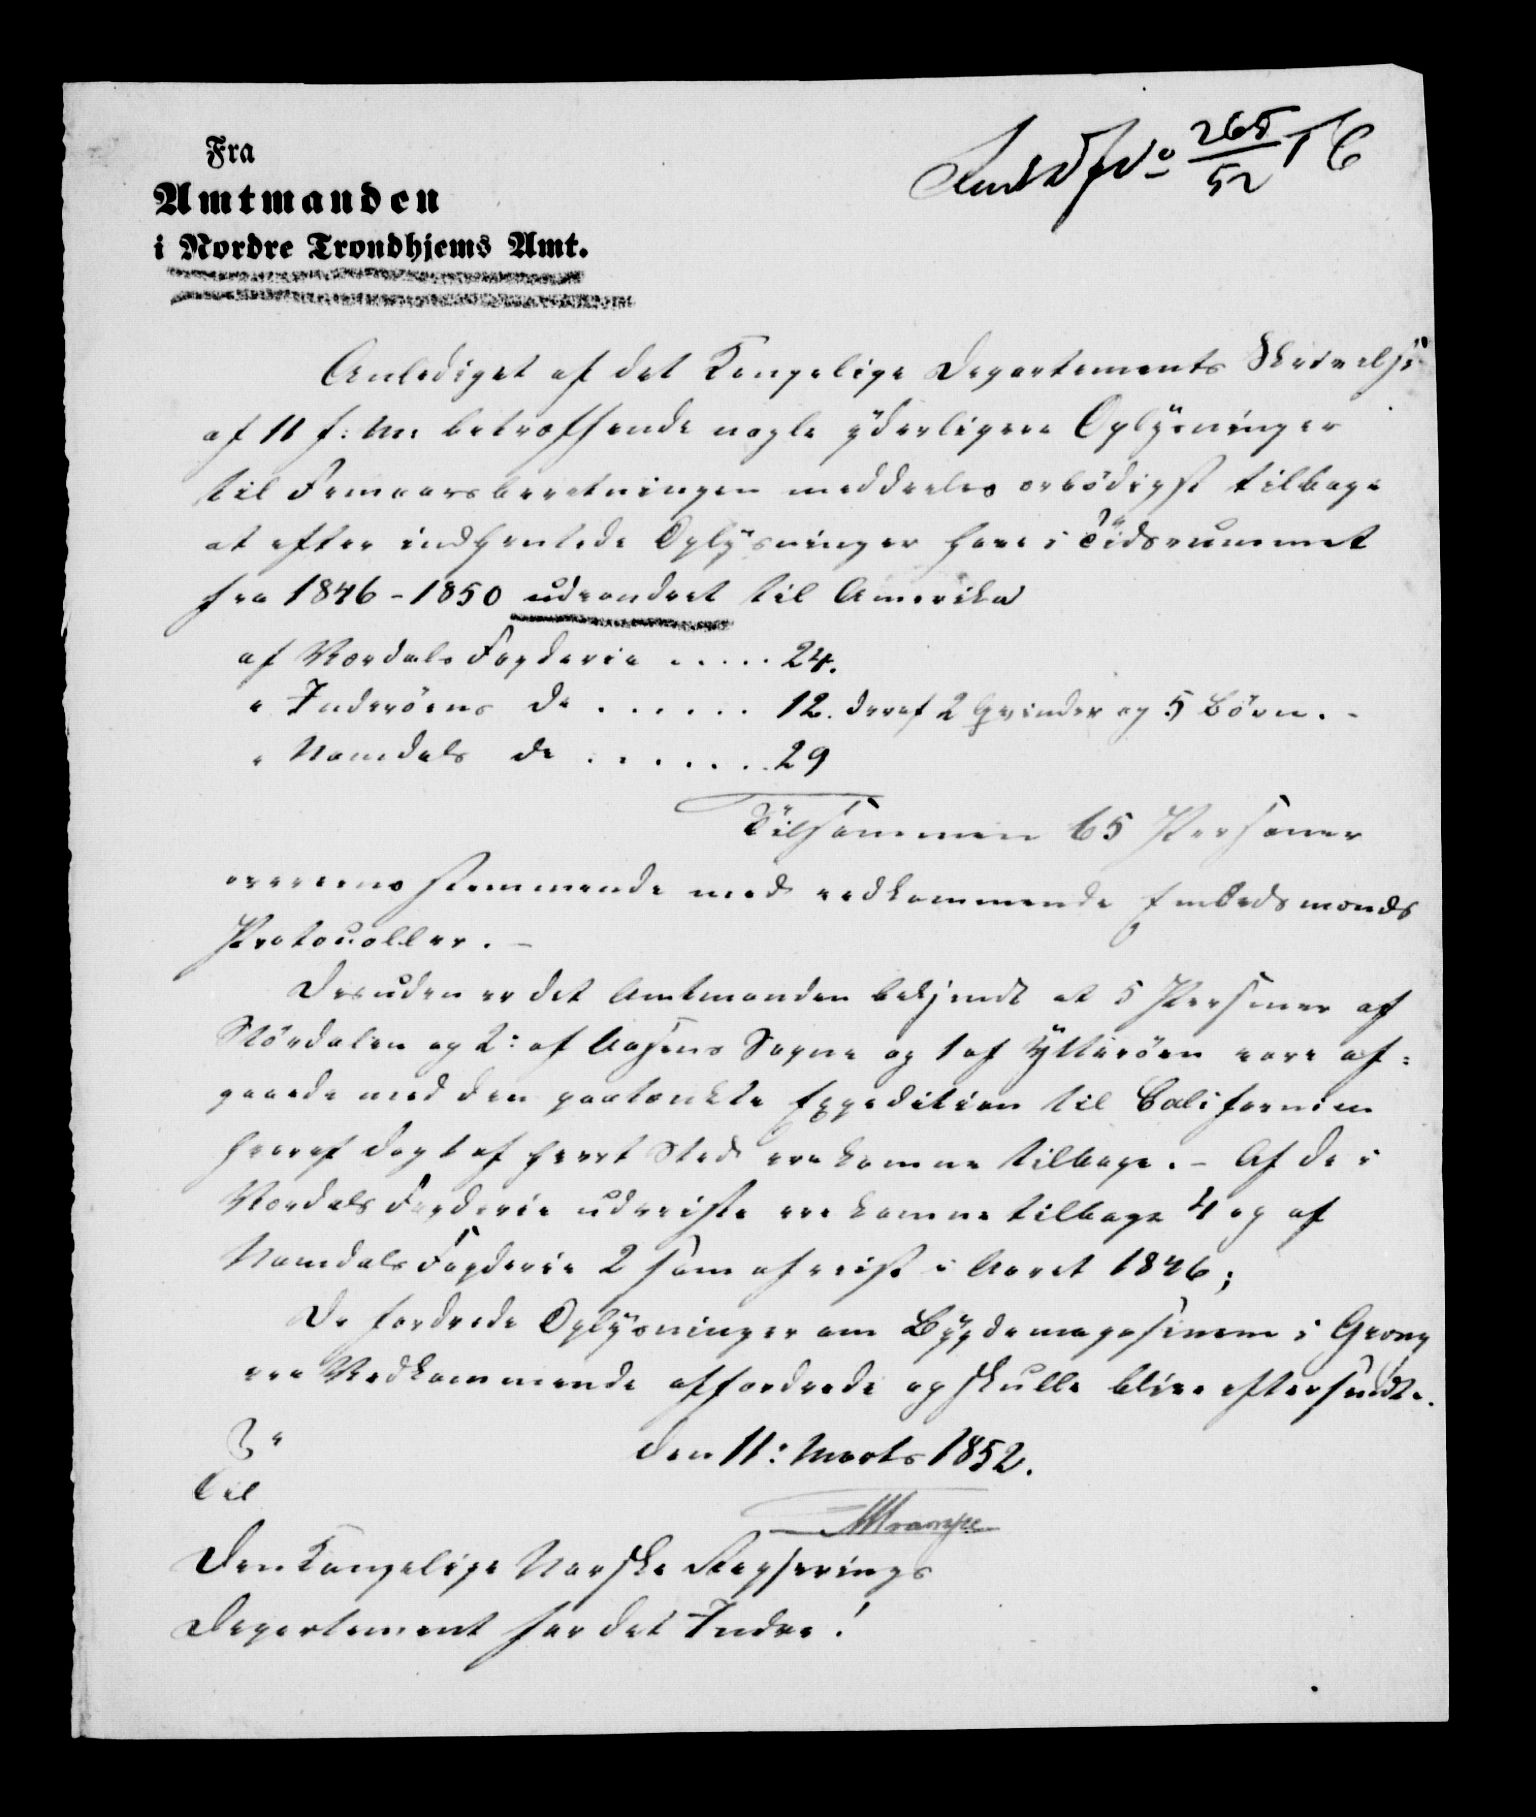 Fra
Amtmanden
i Nordre Trondhjems Amt.
265/52 C
Anlediget af det Kongelige Departements Skrivelse
af 11 f: M: betræffende nogle yderligere Oplysninger
til Femaarsberetningen meddeles ærbödigst tilbage
at efter indhentede Oplysninger have i Tidsrummet
fra 1846-1850 udvandret til Amerika
af Værdals Fogderie ..... 24.
" Inderöens do ...... 12. deraf 2 Qvinder og 5 Börn. -
" Namdals do ....... 29
Tilsammen 65 Personer
overeensstemmende med vedkommende Embedsmænds
Protocoller. -
Desuden er det Amtmanden bekjendt at 5 Personer af
Stördalen og 2: af Aasens Sogne og 1 af Ytteröen vare af-
gaaede med den paatænkte Expedition til Californien
hvoraf dog 1 af hvert Sted ere komne tilbage. - Af de i
Værdals Fogderie udreiste ere komne tilbage 4 og af
Namdals Fogderie 2 som afreist i Aaret 1846;
De fordrede Oplysninger om Bygdemagasinene i Grong
ere Vedkommende affordrede og skulle blive eftersendte.
den 11: Marts 1852.
Til
Den Kongelige Norske Regjerings
Departement for det Indre!